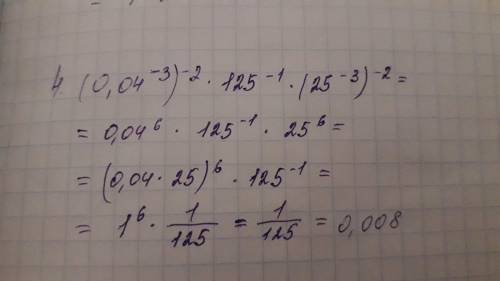 4. (0,04⁻³)⁻² · 125⁻¹ · (25⁻³)⁻² =
= 0,04⁶ · 125⁻¹ · 25⁶ =
= (0,04 · 25)⁶ · 125⁻¹ =
= 1⁶ · 1/125 = 1/125 = 0,008